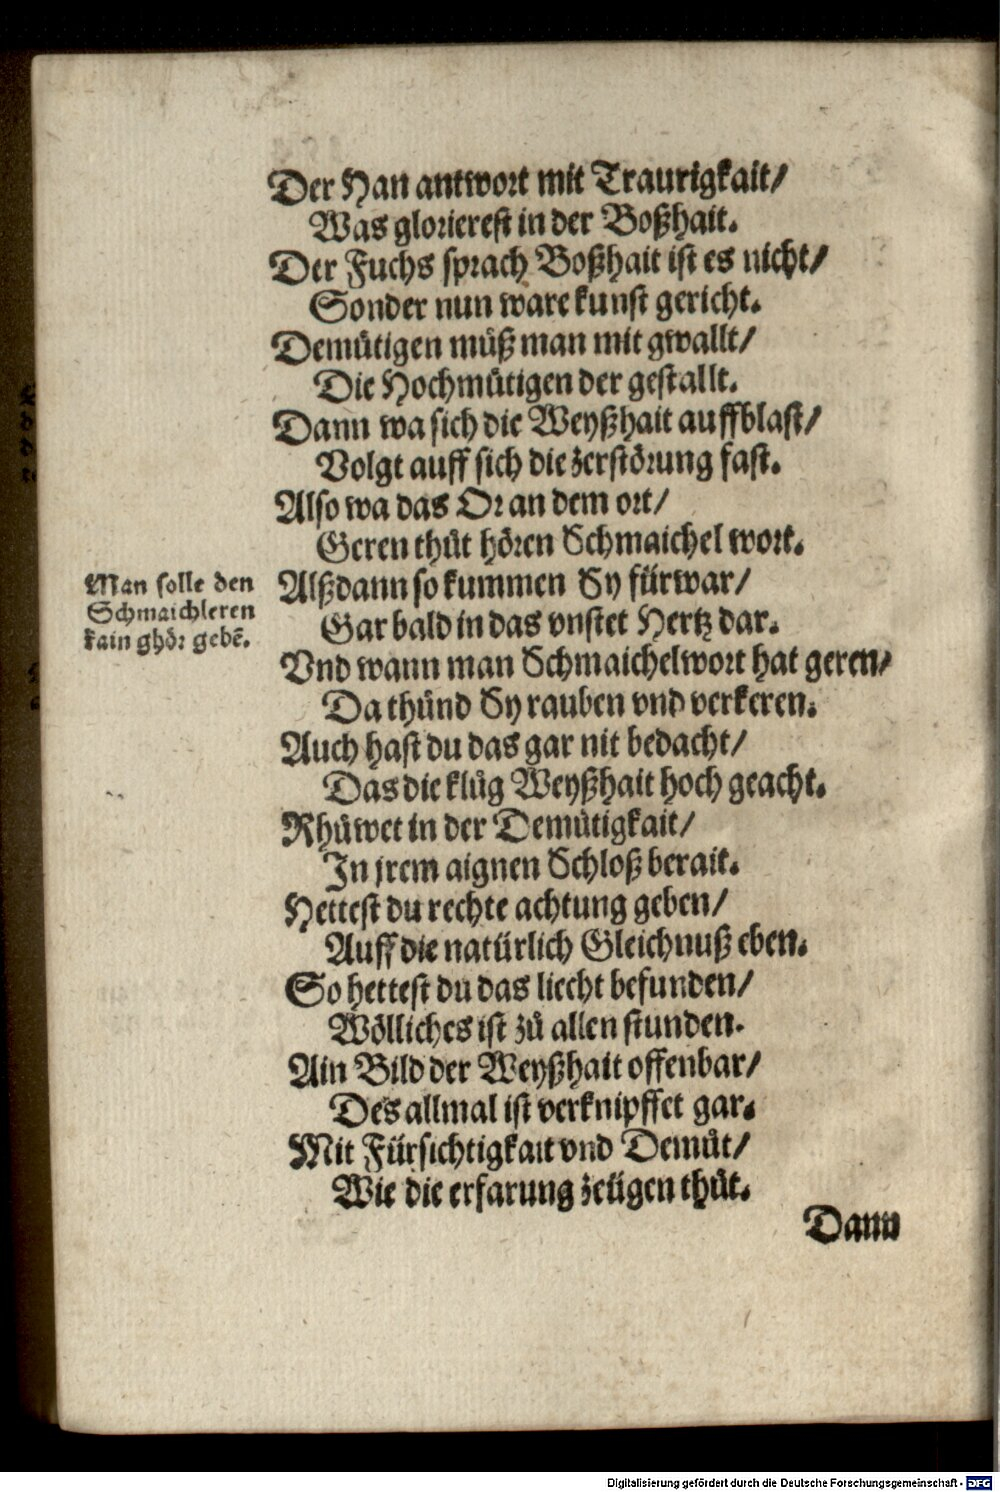 Der Han antwort mit Traurigkait/
Was glorierest in der Boßhait.
Der Fuchs sprach Boßhait ist es nicht/
Sonder nun ware kunst gericht.
Demütigen müß man mit gwallt/
Die Hochmütigen der gestallt.
Dann wa sich die Weyßhait auffblast/
Volgt auff sich die zerstörung fast.
Also wa das Or an dem ort/
Geren thůt hören Schmaichel wort.
Man solle den
Schmaichleren
kain ghör gebē.
Alßdann so kummen Sy fürwar/
Gar bald in das vnstet Hertz dar.
Vnd wann man Schmaichelwort hat geren/
Da thůnd Sy rauben vnd verkeren.
Auch hast du das gar nit bedacht/
Das die klůg Weyßhait hoch geacht.
Rhůwet in der Demütigkait/
In jrem aignen Schloß berait.
Hettest du rechte achtung geben/
Auff die natürlich Gleichnuß eben.
So hettest du das liecht befunden/
Wölliches ist zů allen stunden.
Ain Bild der Weyßhait offenbar/
Des allmal ist verknipffet gar.
Mit Fürsichtigkait vnd Demůt/
Wie die erfarung zeügen thůt.
Dann
Digitalisierung gefördert durch die Deutsche Forschungsgemeinschaft - DFG